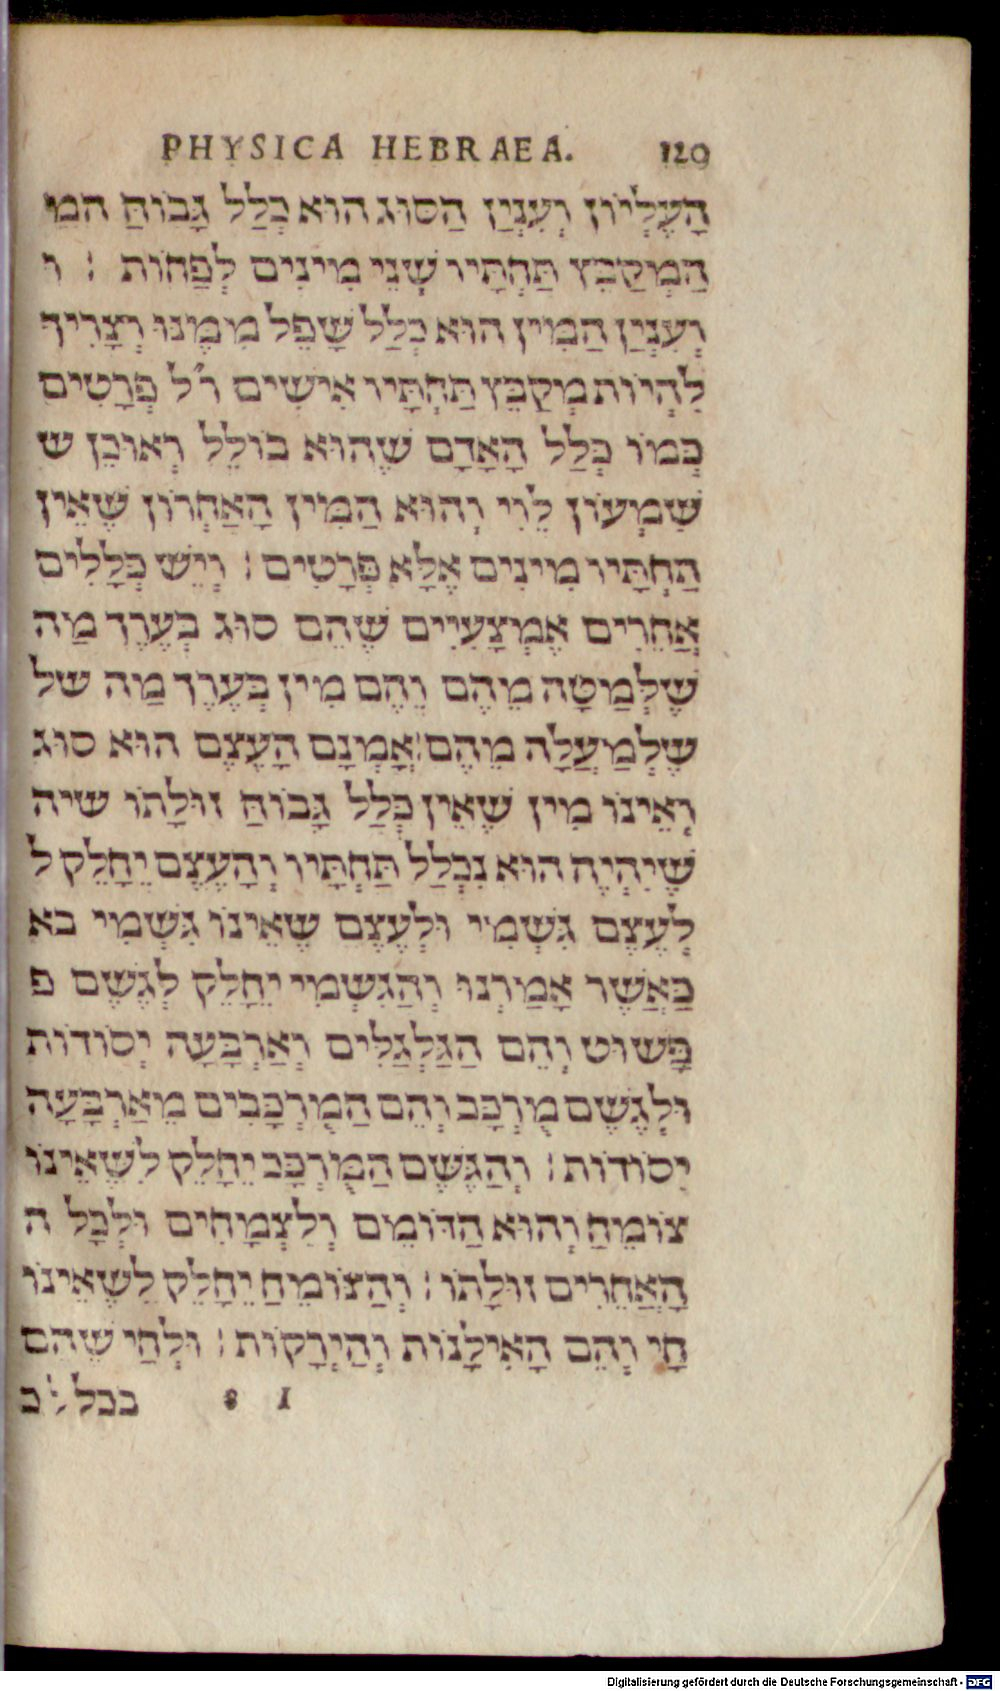 PHYSICA HEBRAEA. 129
הָעֶלְיוֹן וְעִנְיַן הַסוּג הוּא כְלַל גָּבוֹהַּ המ
הַמְקַבֵּץ תַּחְתָּיו שְׁנֵי מִינִים לְפַחוֹת : ו
וְעִנְיַן הַמִין הוּא כְלַל שָׁפֵל מִמֶּנּוּ וְצָרִיךְ
לִהְיוֹת מְקַבֵּץ תַּחְתָּיו אִישִׁים ר״ל פְּרָטִים
כְּמוֹ כְּלַל הָאָדָם שֶׁהוּא כּוֹלֵל רְאוּבֵן ש
שִׁמְעוֹן לֵוִי וְהוּא הַמִּין הָאַחְרוֹן שֶׁאֵין
תַחְתָּיו מִינִים אֶלָּא פְּרָטִים : וְיֵשׁ כְּלָלִים
אֲחֵרִים אֶמְצָעִיִים שֶׁהֵם סוּג בְּעֶרֶךְ מַה
שֶׁלְּמַטָּה מֵהֶם וְהֶם מִין בְּעֶרֶךְ מַה של
שֶׁלְמַעֲלָה מֵהֶם : אָמְנָם הָעֶצֶם הוּא סוּג
וְאֵינוֹ מִין שֶׁאֵין כְּלַל גָּבוֹהַּ זוּלָתוֹ שיה
שֶׁיִהְיֶה הוּא נִכְלַל תַּחְתָּיו וְהָעֶצֶם יֵחָלֵק ל
לְעֶצֶם גִּשְׁמִי וּלְעֶצֶם שֶׁאֵינוֹ גִּשְׁמִי כא
כַּאֲשֶׁר אָמַרְנוּ וְהַגִשְׁמִי יֵחָלֵק לְגֶשֶׁם פ
פָּשׁוּט וְהֵם הַגַּלְגַּלִּים וְאַרְבָּעָה יְסוֹדוֹת
וּלְגֶשֶׁם מֻרְכָּב וְהֵם הַמֻרְכָּבִים מֵאַרְבָּעָה
יְסוֹדוֹת : וְהַגֶּשֶׁם הַמֻּרְכָּב יֵחָלֵק לְשֶׁאֵינוֹ
צוֹמֵחַ וְהוּא הַדּוֹמֵם וְלִצְמָחִים וּלְכָל ה
הָאֲחֵרִים זוּלָתוֹ : וְהַצּוֹמֵחַ יֵחָלֵק לְשֶׁאֵינוֹ
חָי וְהֵם הָאִילָנוֹת וְהַיְרָקוֹת : וּלְחַי שֶׁהֵם
I